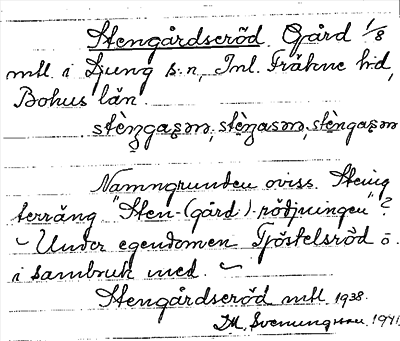 Stengårdseröd Gård 1/8
mtl. i Ljung s:n, Inl. Fräkne h:d,
Bohus län.
stèŋgasən, stèŋasən, stèngasən
Namngrunden oviss. Stenig
terräng. "Sten-(gård-)-rödjningen"?
~ Under egendomen Tjöstelsröd ö.
i sambruk med. ~
Stengårdseröd mtl. 1938.
M. Svenungsson 1941